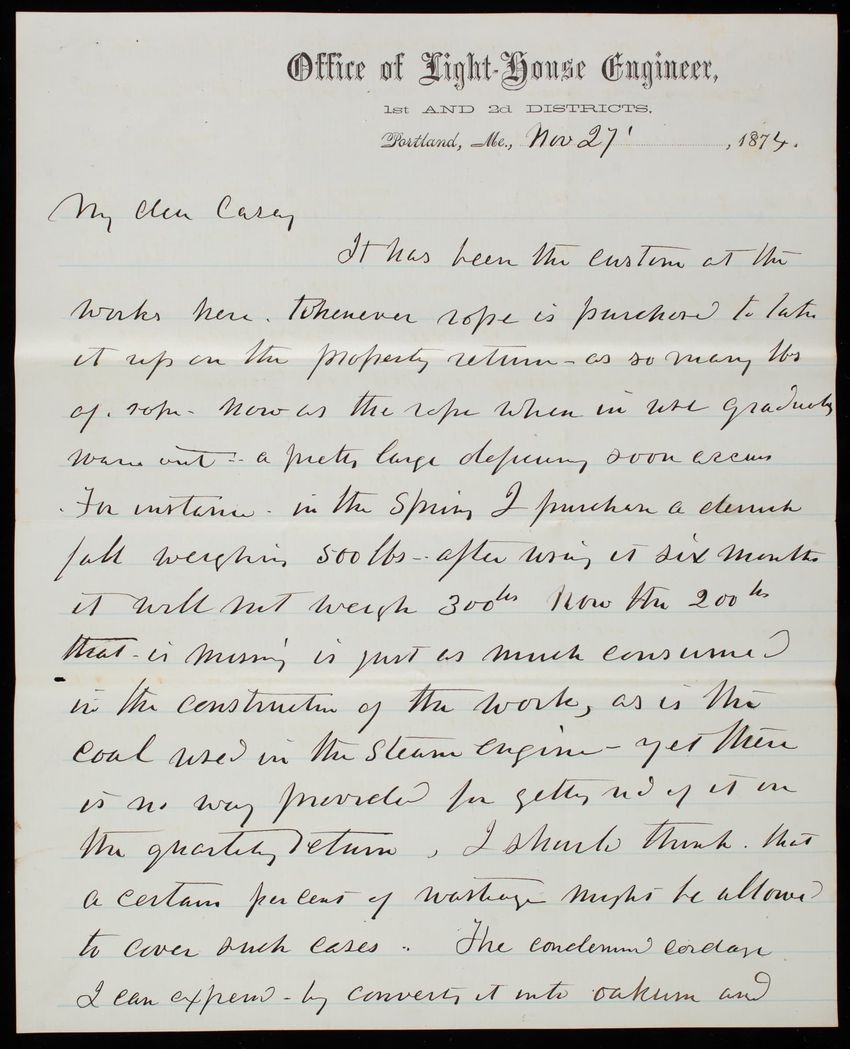 Office of Light-House Engineer,
1st AND 2d DISTRICTS.
Portland, Me., Nov 27' , 1874.
My dear Casey
It has been the custom at the
works here. Whenever rope is purchased to take
it up on the property return - as so many lbs
of. rope - Now as the rope when in use gradually
wares out - a pretty large deficiency soon occurs
For instance - in the Spring I purchase a derrick
fall weighing 500 lbs - after using it six months
it will not weigh 300 lbs Now the 200 lbs
that is missing is just as much consumed
in the construction of the work, as is the
coal used in the steam engine - yet there
is no way provided for getting rid of it on
the quarterly return , I should think. that
a certain per cent of wastage might be allowed
to cover such cases - The condemned cordage
I can expend - by converting it into oakum and